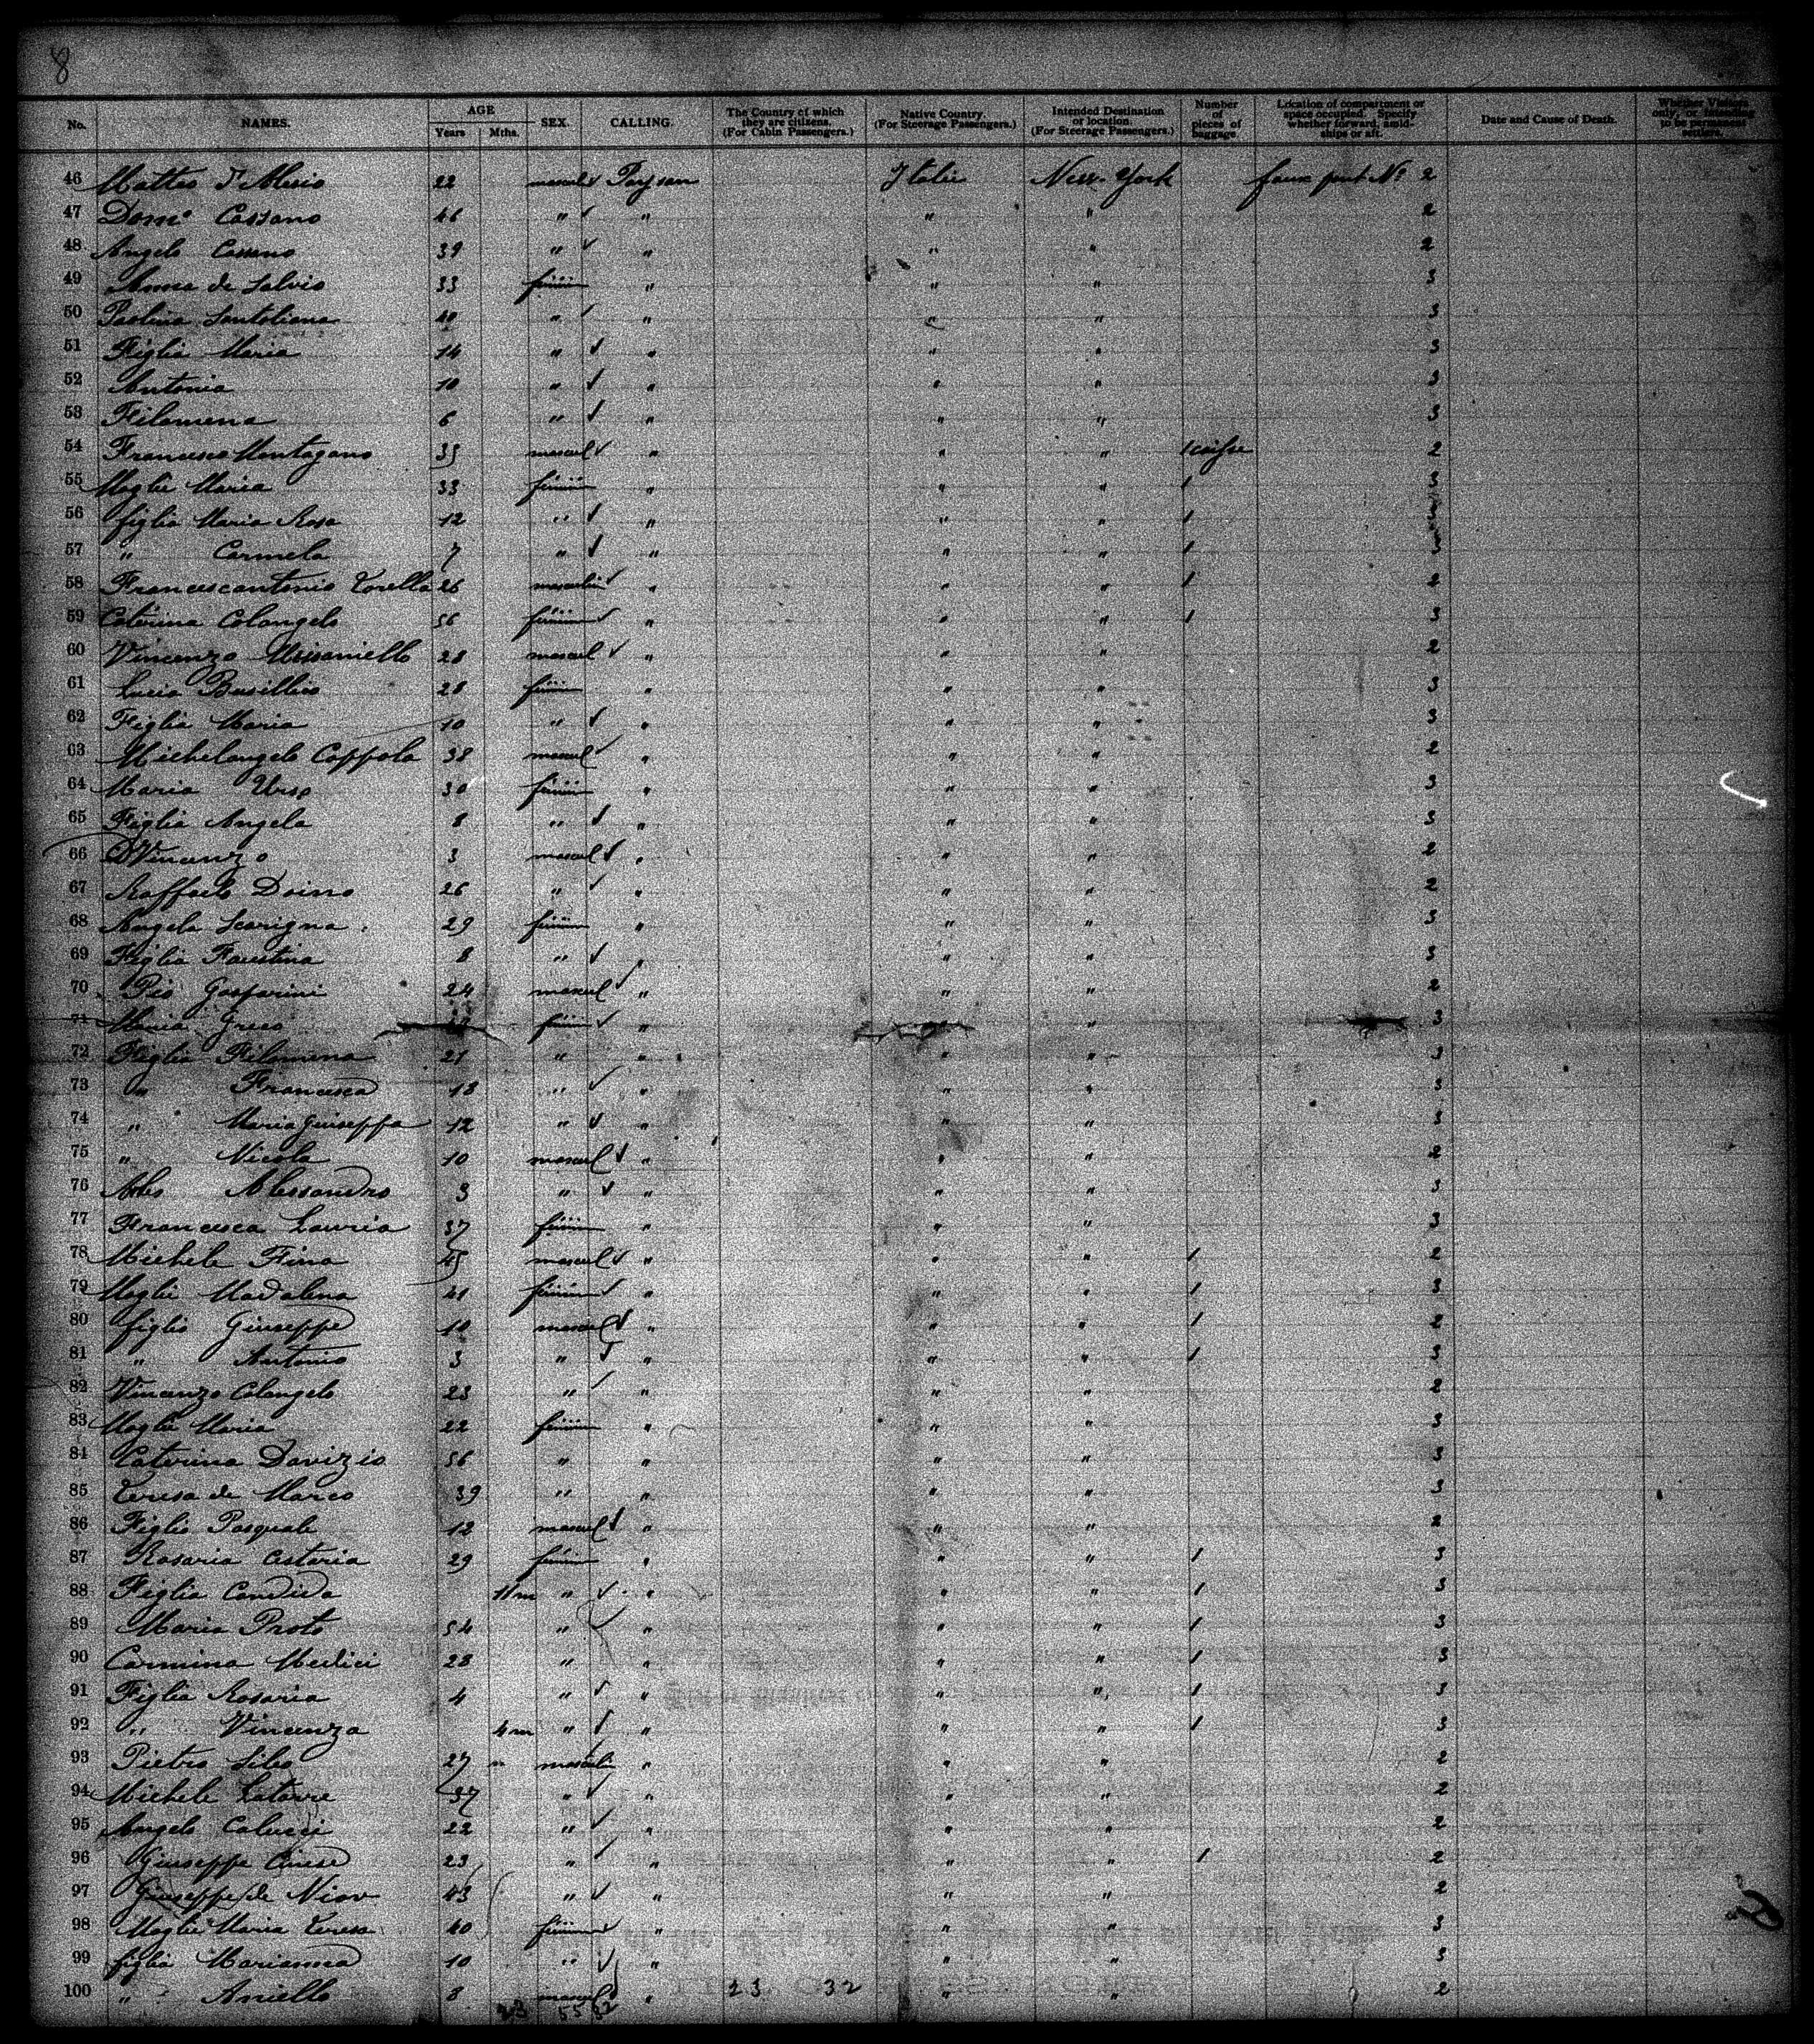 8
No. NAMES. AGE Years Mths. SEX. CALLING. The Country of which they are citizens. (For Cabin Passengers.) Native Country. (For Steerage Passengers.) Intended Destination or location. (For Steerage Passengers.) Number of pieces of baggage Location of compartment or space occupied. Specify whether forward, amidships or aft. Date and Cause of Death. Whether Visitors only, or intending to be permanent settlers.
46 Matteo d'Alesio 22 mascul Paysan Italie New-York faux pont No 2
47 Domo Cassano 46 " " " " 2
48 Angelo Cassano 39 " " " " 2
49 Anna de Salvio 33 fémin " " " 3
50 Paolina Santoliana 40 " " " " 3
51 Figlia Maria 14 " " " " 3
52 Antonia 10 " " " " 3
53 Filomena 6 " " " " 3
54 Francesco Montagano 35 mascul " " " 1 caisse 2
55 Moglie Maria 33 fémin " " " 1 3
56 figlia Maria Rosa 12 " " " " 1 3
57 " Carmela 7 " " " " 1 3
58 Francescantonio Torella 26 masculin " " " 1 2
59 Caterina Colangelo 56 fémin " " " 1 3
60 Vincenzo 28 mascul " " " 2
61 Lucia Busillico 28 fémin " " " 3
62 Figlia Maria 10 " " " " 3
63 Michelangelo Coppola 38 mascul " " " 2
64 Maria Urso 30 fémin " " " 3
65 Figlia Angela 8 " " " " 3
66 Vincenzo 3 mascul " " " 2
67 Raffaele Doino 26 " " " " 2
68 Angela Scarigna 29 fémin " " " 3
69 Figlia Faustina 8 " " " " 3
70 Pio Gasparini 24 mascul " " " 2
71 Maria Greco fémin " " " 3
72 Figlia Filomena 21 " " " " 3
73 " Francesca 18 " " " " 3
74 " Maria Giuseppa 12 " " " " 3
75 " Nicola 10 mascul " " " 2
76 Alessandro 3 " " " " 3
77 Francesca Lauria 37 fémin " " " 3
78 Michele Fina 45 mascul " " " 1 2
79 Moglie Madalena 41 fémin " " " 1 3
80 figlio Giuseppe 10 mascul " " " 1 2
81 " Antonio 3 " " " " 1 3
82 Vincenzo Colangelo 23 " " " " 2
83 Moglie Maria 22 fémin " " " 3
84 Caterina Davizio 56 " " " " 3
85 Teresa de Marco 39 " " " " 3
86 Figlio Pasquale 12 mascul " " " 2
87 Rosaria Astaria 29 fémin " " " 1 3
88 Figlia Candida 11 m " " " " 1 3
89 Maria Proto 54 " " " " 1 3
90 Carmina Medici 28 " " " " 1 3
91 Figlia Rosaria 4 " " " " 1 3
92 " Vincenza 4 m " " " " 1 3
93 Pietro Sileo 27 masculin " " " 2
94 Michele Latorre 37 " " " " 2
95 Angelo Colucci 22 " " " " 2
96 Giuseppe Cinese 23 " " " " 1 2
97 Giuseppe de 43 " " " " 2
98 Moglie Maria Teresa 40 fémin " " " 3
99 figlia Marianna 10 " " " " 3
100 " Aniello 8 mascul " 23 32 " " 2